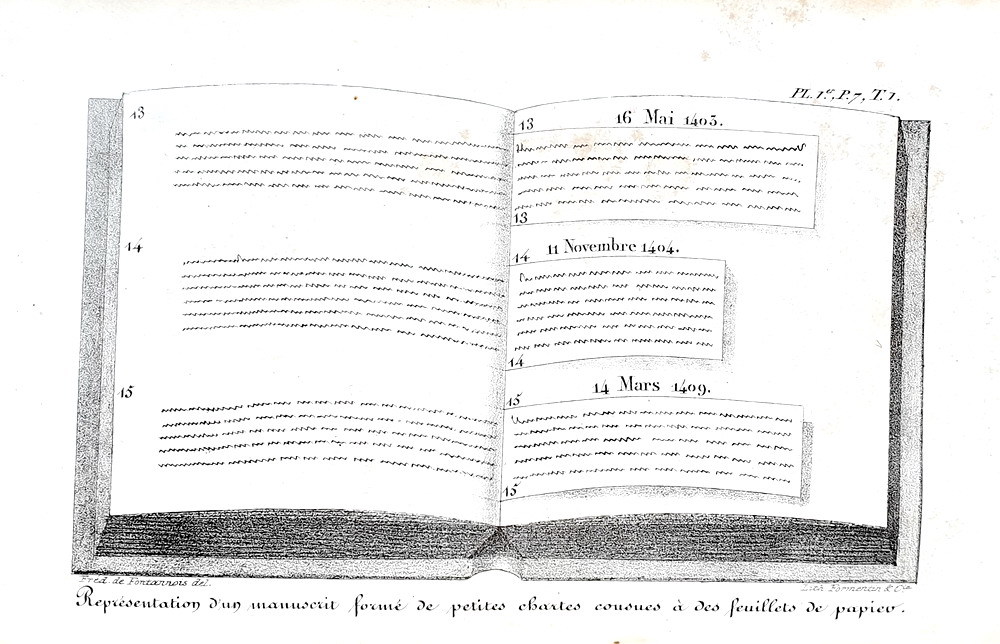 PL. 1.re, P. 7, T. 1.
13
14
15
13 16 Mai 1403.
13
14 11 Novembre 1404.
14
14 Mars 1409.
15
15
Fred. de Fontannois del.
Lith. Formentin & Cie
Représentation d'un manuscrit formé de petites chartes cousues à des feuillets de papier.